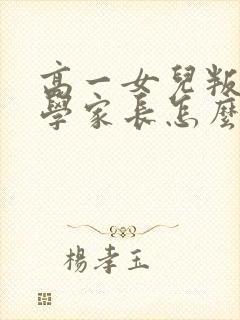 高一女兒叛
學家長怎麼
楊孝玉